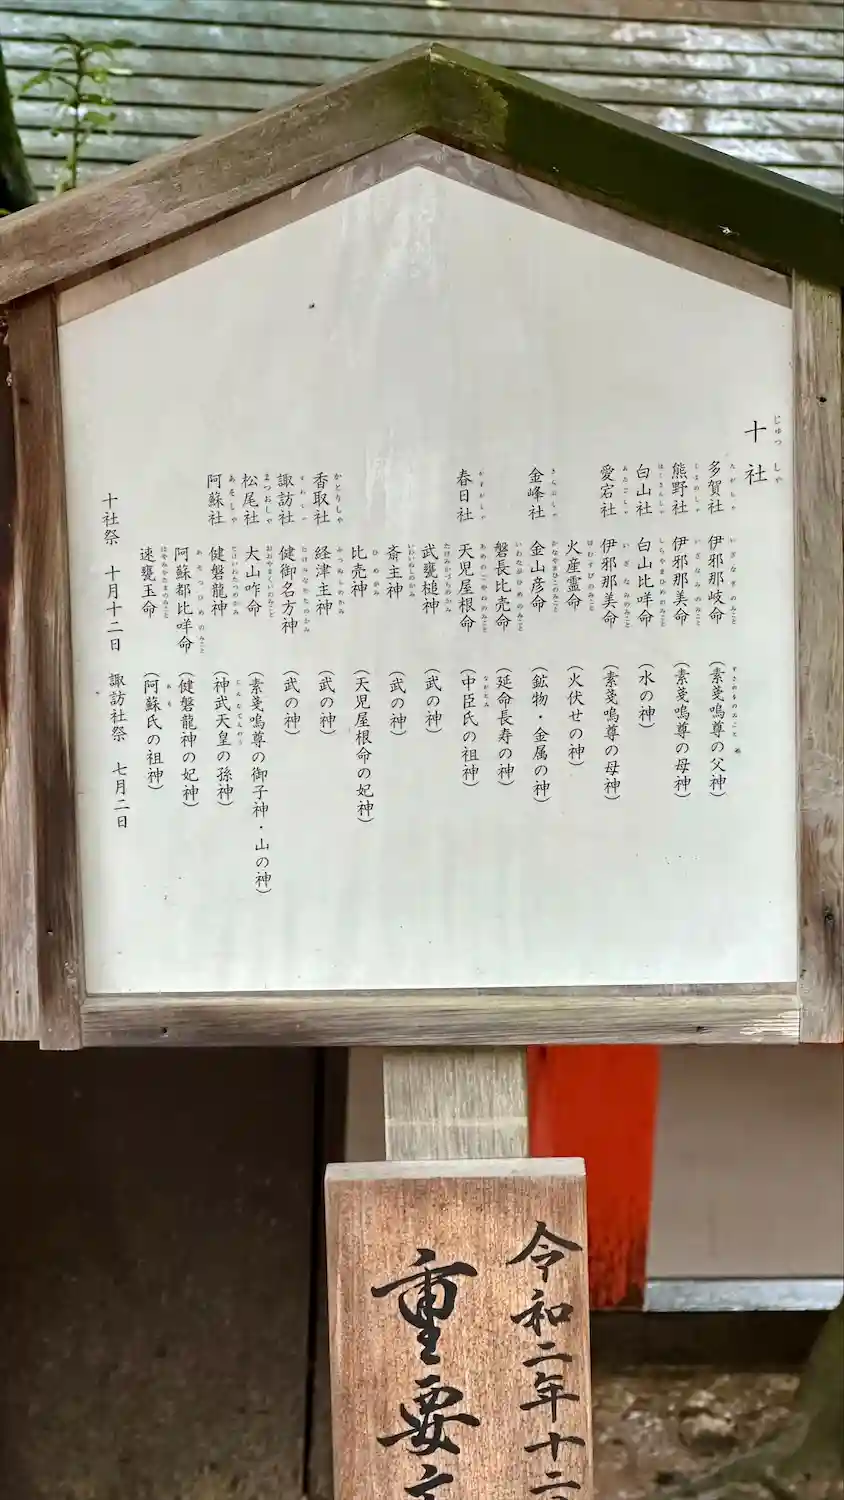 十社
多賀社 伊邪那岐命 (素戔嗚尊の父神)
熊野社 伊邪那美命 (素戔嗚尊の母神)
白山社 白山比咩命 (水の神)
愛宕社 伊邪那美命 (素戔嗚尊の母神)
火産霊命 (火伏せの神)
金峰社 金山彦命 (鉱物・金属の神)
磐長比売命 (延命長寿の神)
春日社 天児屋根命 (中臣氏の祖神)
武甕槌神 (武の神)
斎主神 (武の神)
比売神 (天児屋根命の妃神)
香取社 経津主神 (武の神)
諏訪社 健御名方神 (武の神)
松尾社 大山咋命 (素戔嗚尊の御子神・山の神)
阿蘇社 健磐龍神 (神武天皇の孫神)
阿蘇都比咩命 (健磐龍神の妃神)
速甕玉命 (阿蘇氏の祖神)
十社祭 十月十二日 諏訪社祭 七月二日
令和二年十二
重要